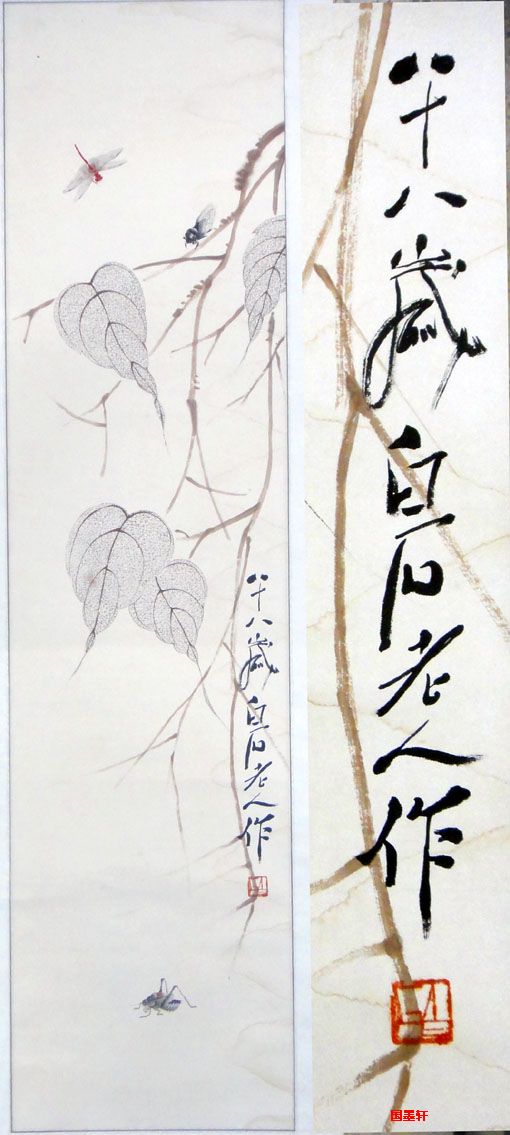 八十八歲白石老人作
八十八歲白石老人作
国墨轩